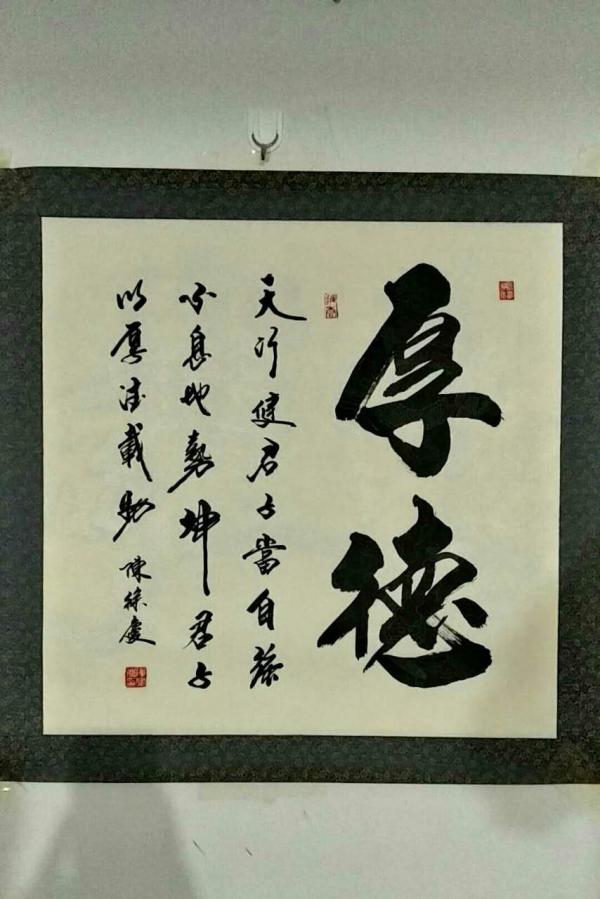 厚德
天行健君子當自强
不息地勢坤君子
以厚德載物 陳徐慶